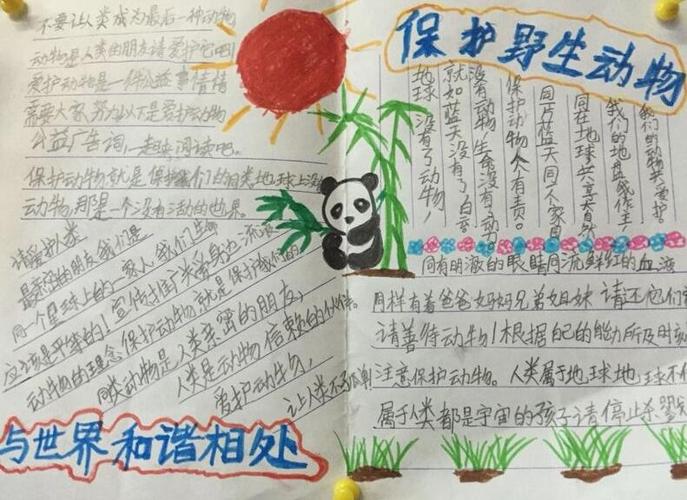 不要让人类成为最后一种动物
动物是人类的朋友请爱护它吧
爱护动物是一件公益事情情
需要大家努力以下是爱护动物
公益广告词一起来阅读吧。
保护动物就是保护我们的同类地球上没有
动物,那是一个没有活力的世界。
请爱护人类
最亲密的朋友我们是
同一个星球上的一家人我们生命
应该是平等的!宣传推广关爱身边流浪
动物的理念保护动物就是保护我们的
同类动物是人类亲密的朋友,
人类是动物信赖的伙伴。
爱护动物,
让人类不孤单
与世界和谐相处
保护野生动物
我们的动物共爱护
我们的地盘我作主,
同在地球共享自然
同一方蓝天同一个家园
保护动物人人有责。
没有动物生命没有动
就如蓝天没有了白云
地球没有了动物,
同有明澈的眼睛同流鲜红的血液
同样有着爸爸妈妈兄弟姐妹请还他们
请善待动物!根据自己的能力所及时刻
注意保护动物。人类属于地球地球不
属于人类都是宇宙的孩子请停止杀戮